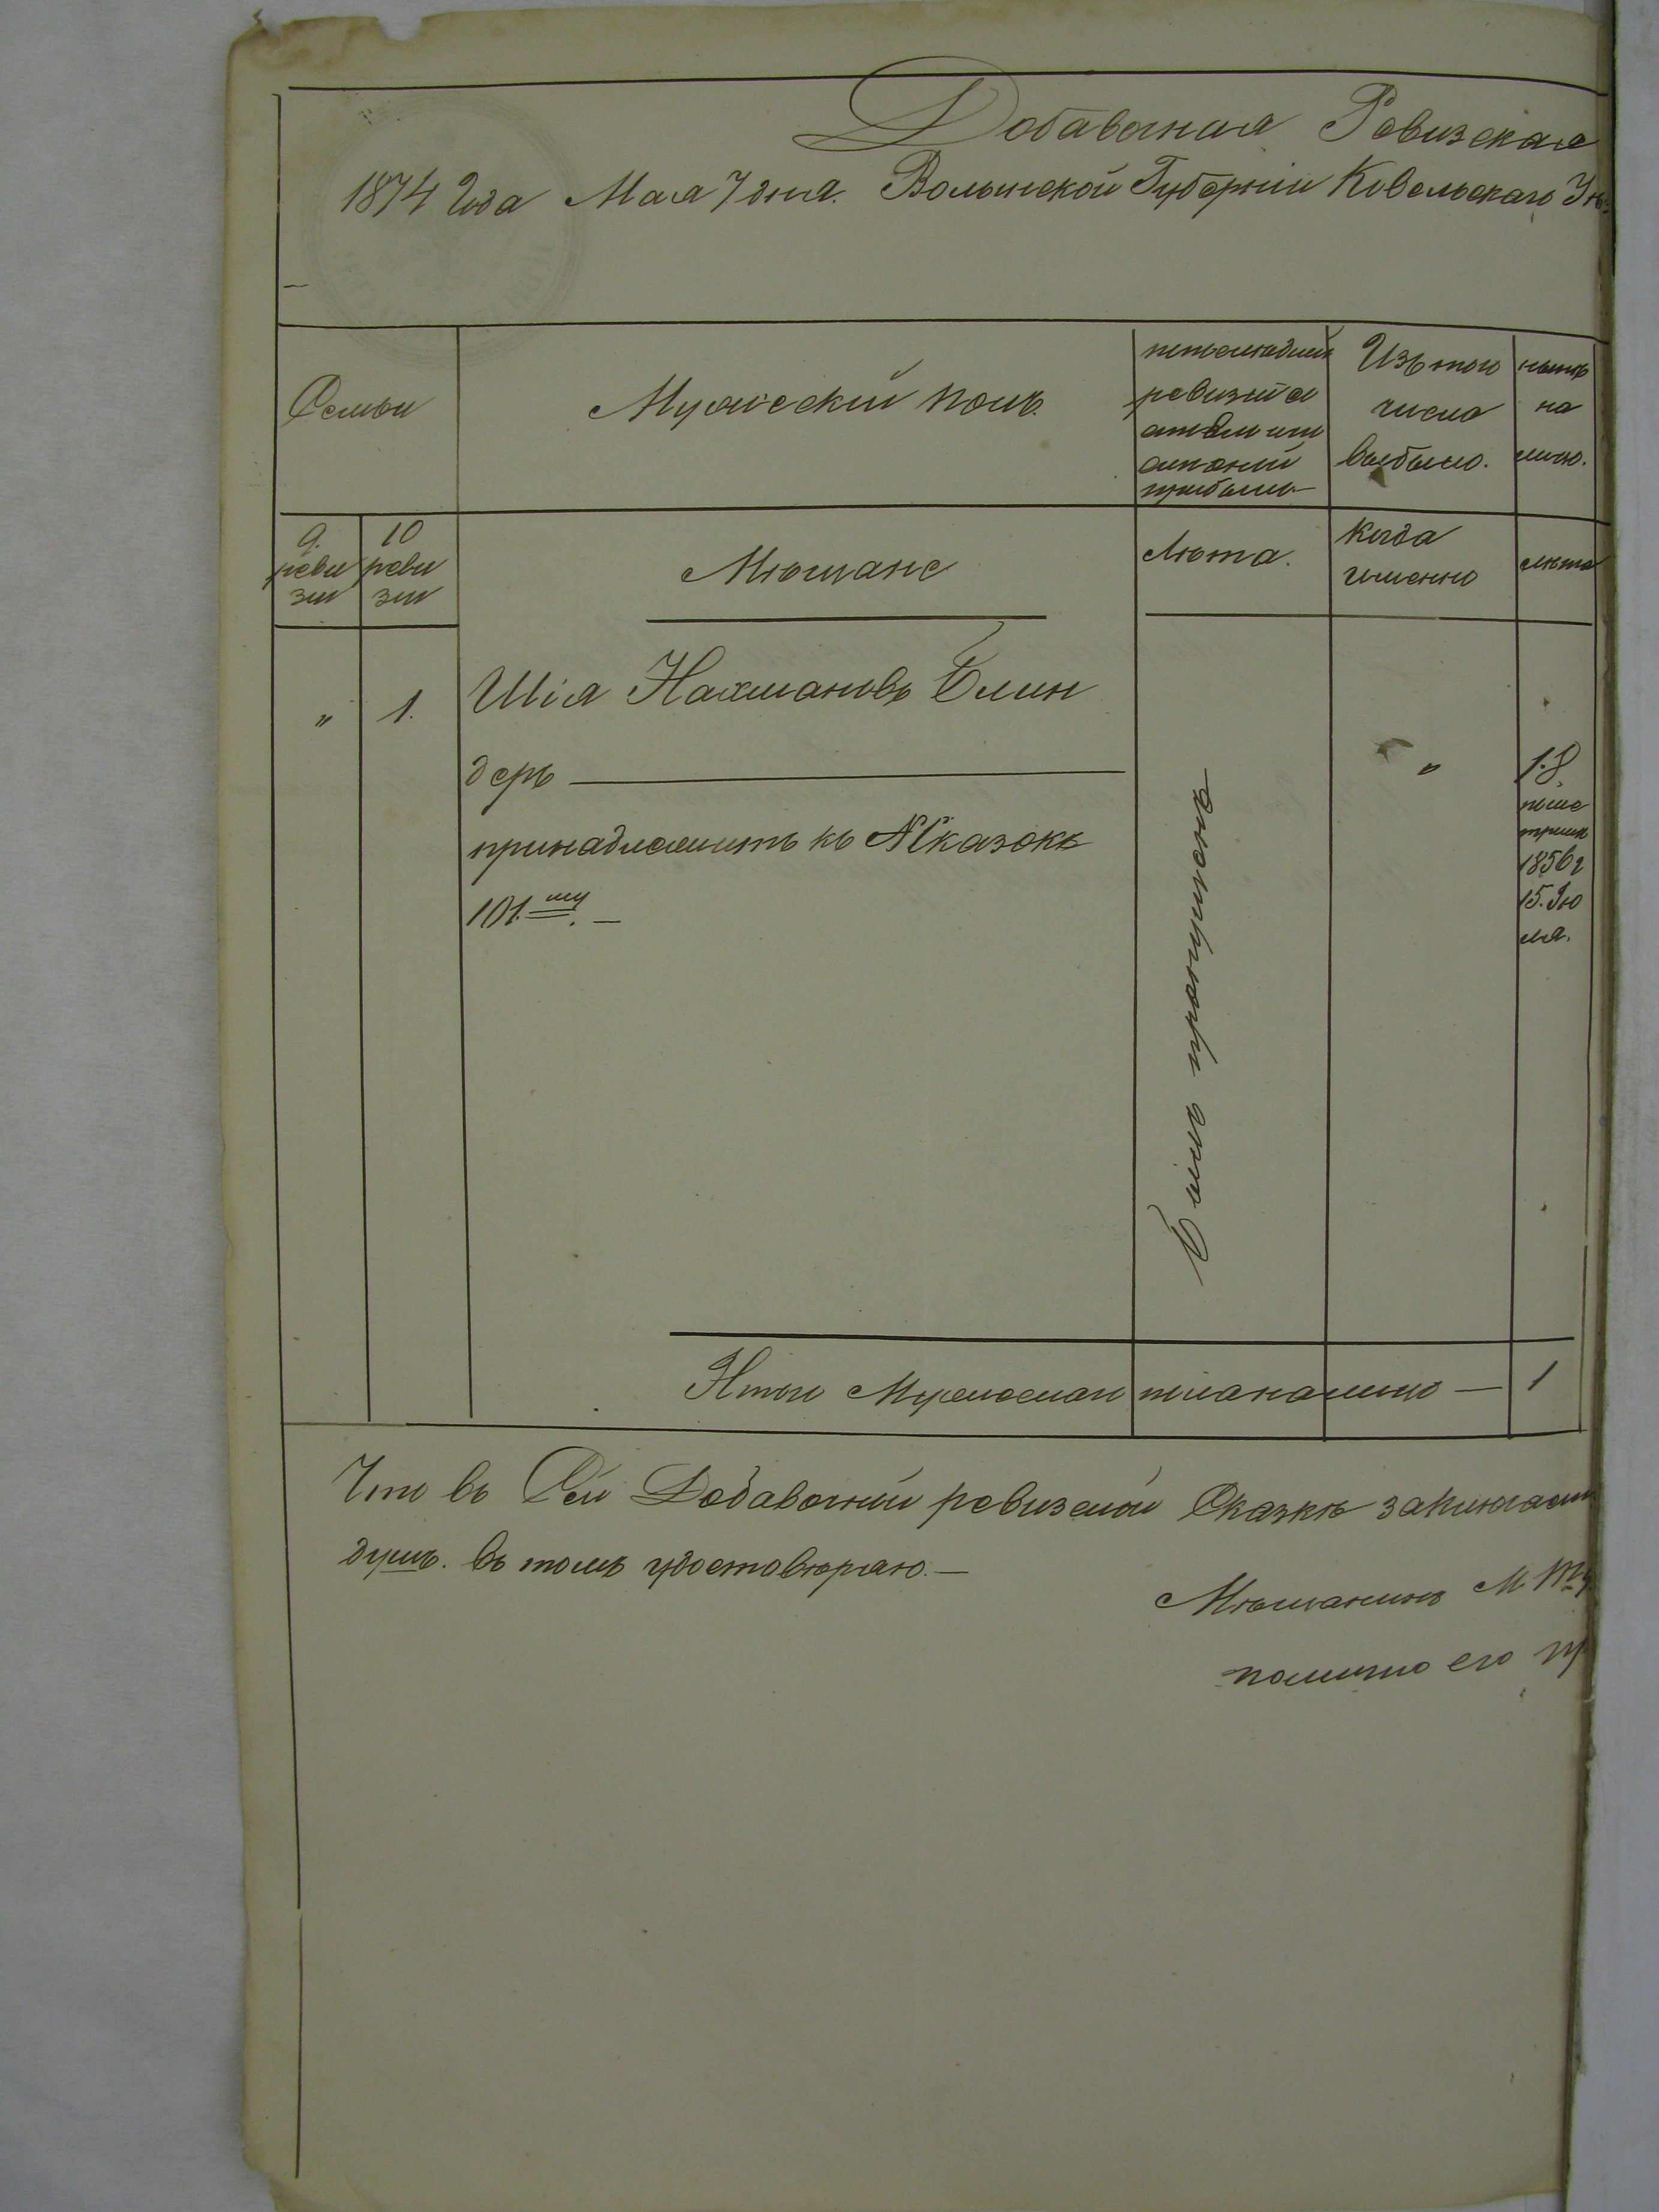 Добавочная Ревизская
1874 Года Мая 7 дня. Волынской Губерніи Ковельскаго Уѣ
Семьи
Мужескій полъ.
ревизіи
прибыли
Изъ того
числа
выбыло.
нынѣ
на
лицо.
9.
реви
зіи
10
реви
зіи
Мѣщане
Лѣта.
Когда
именно
лѣта
" 1. Шія Нахмановъ Блин
деръ
принадлежитъ къ № Сказокъ
101.му. —
Былъ пропущенъ
"
18
1856 г
15. Ію
ля.
Итого Мужеска пола налицо — 1
Что въ Сей Добавочной ревизской Сказкѣ заключает
душъ. въ томъ удостовѣряю. —
Мѣщанинъ М.
его